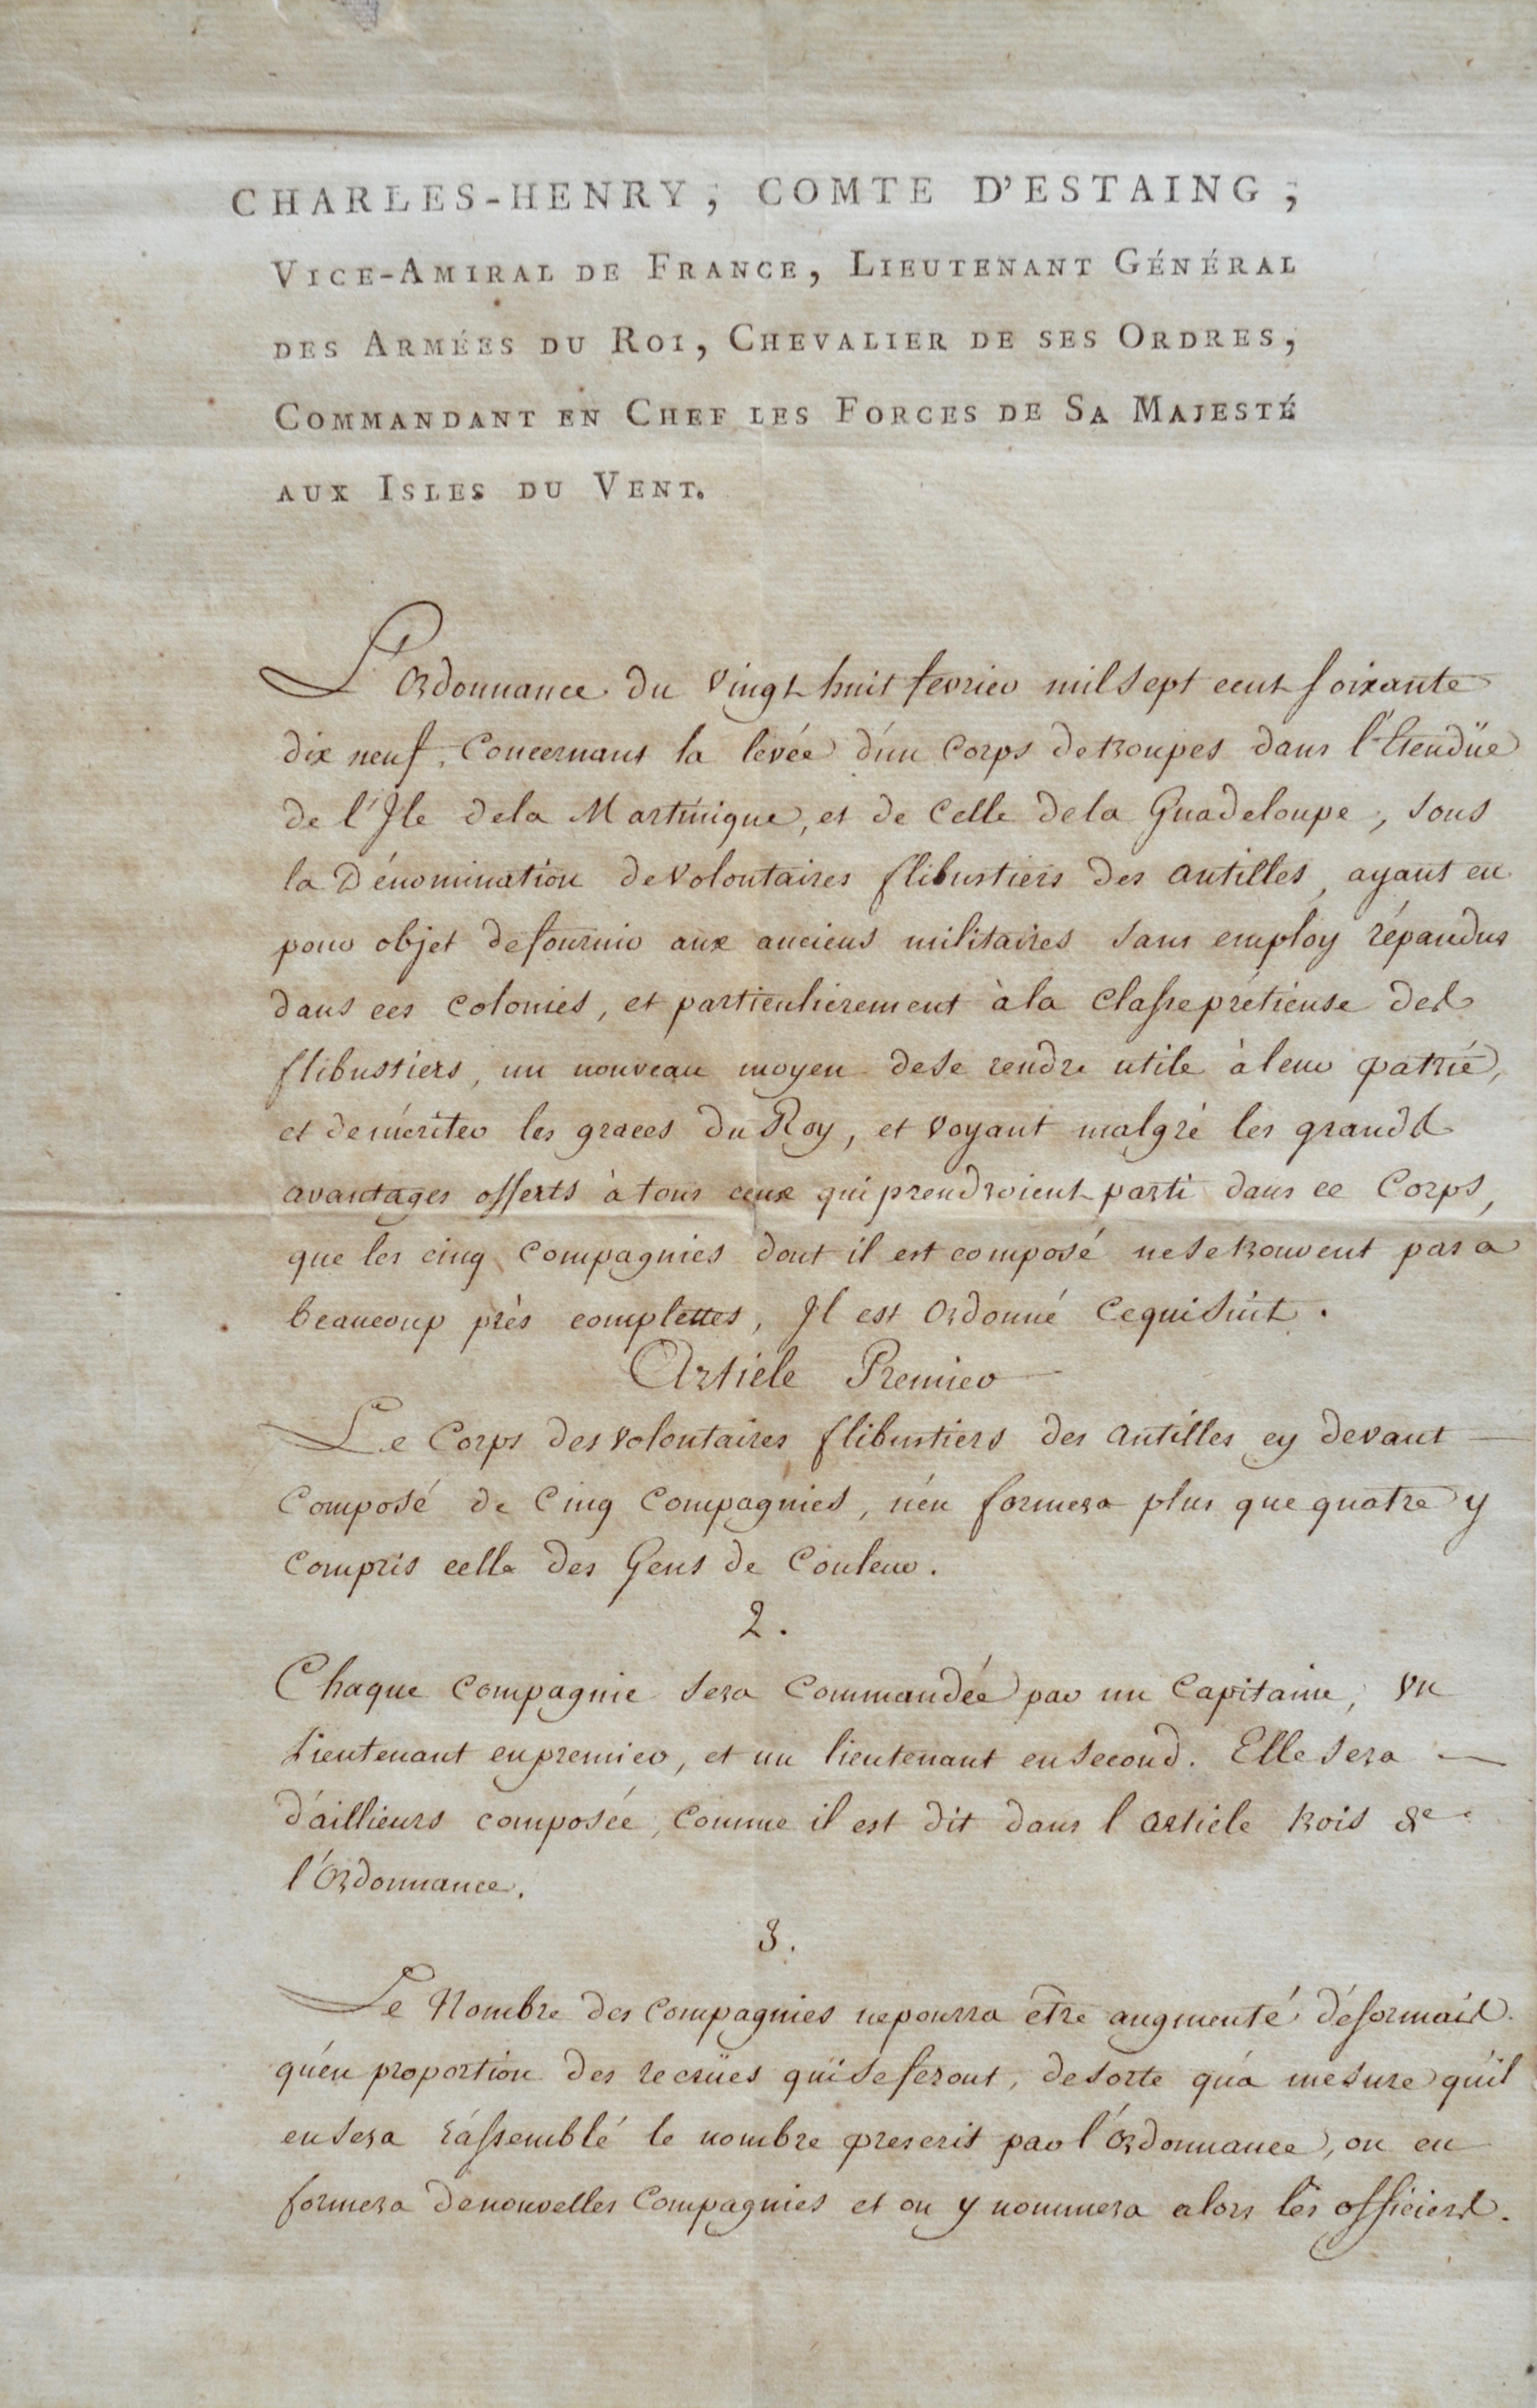 CHARLES-HENRY, COMTE D'ESTAING,
VICE-AMIRAL DE FRANCE, LIEUTENANT GÉNÉRAL
DES ARMÉES DU ROI, CHEVALIER DE SES ORDRES,
COMMANDANT EN CHEF LES FORCES DE SA MAJESTÉ
AUX ISLES DU VENT.
L'Ordonnance du vingt huit fevrier mil sept cent soixante
dix neuf, Concernant la levée d'un Corps de troupes dans l'Etendüe
de l'Ile de la Martinique, et de Celle de la Guadeloupe, sous
la Dénomination de volontaires flibustiers des antilles, ayant eu
pour objet de fournir aux anciens militaires sans employ répandus
dans ces Colonies, et particulièrement à la Classe prétieuse des
flibustiers, un nouveau moyen de se rendre utile à leur patrie,
et de mériter les graces du Roy, et voyant malgré les grands
avantages offerts à tous ceux qui prendroient parti dans ce Corps,
que les cinq Compagnies dont il est composé ne se trouvent pas a
beaucoup près complettes, Il est Ordonné Ce qui suit.
Article Premier
Le Corps des volontaires flibustiers des antilles cy devant
Composé de Cinq Compagnies, n'en formera plus que quatre y
Compris celle des Gens de Couleur.
2.
Chaque Compagnie sera Commandée par un Capitaine, un
Lieutenant en premier, et un lieutenant en second. Elle sera
d'aillieurs composée, Comme il est dit dans l'article trois de
l'Ordonnance.
3.
Le Nombre des Compagnies ne pourra être augmenté désormais
qu'en proportion des recrües qui se feront, de sorte qu'a mesure qu'il
en sera rassemblé le nombre prescrit par l'Ordonnance, on en
formera de nouvelles Compagnies et on y nommera alors les officiers.